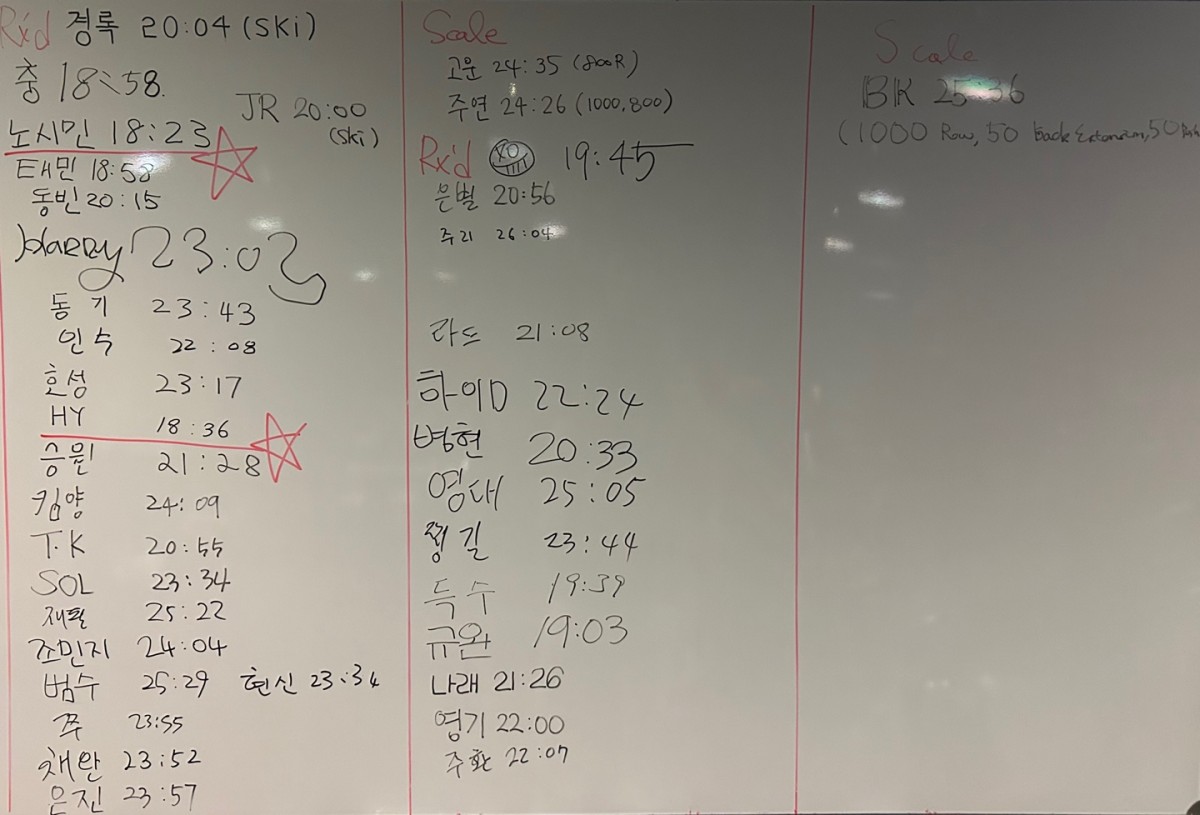 Rx'd 경록 20:04 (SKi)
충 18:58.
JR 20:00
(Ski)
노시민 18:23
태민 18:58
동빈 20:15
HARRY 23:02
동기 23:43
인수 22:08
호성 23:17
HY 18:36
승원 21:28
킴양 24:09
T.K 20:55
SOL 23:34
재필 25:22
조민지 24:04
범수 25:29 현신 23:34
쭈 23:55
채완 23:52
은진 23:57
Scale
고운 24:35 (800R)
주연 24:26 (1000,800)
Rx'd XO 19:45
은별 20:56
주리 26:04
라드 21:08
하이D 22:24
병현 20:33
영대 25:05
길 23:44
득수 19:39
규완 19:03
나래 21:26
영기 22:00
주환 22:07
Scale
BK 25:36
(1000 Row, 50 back Extension, 50